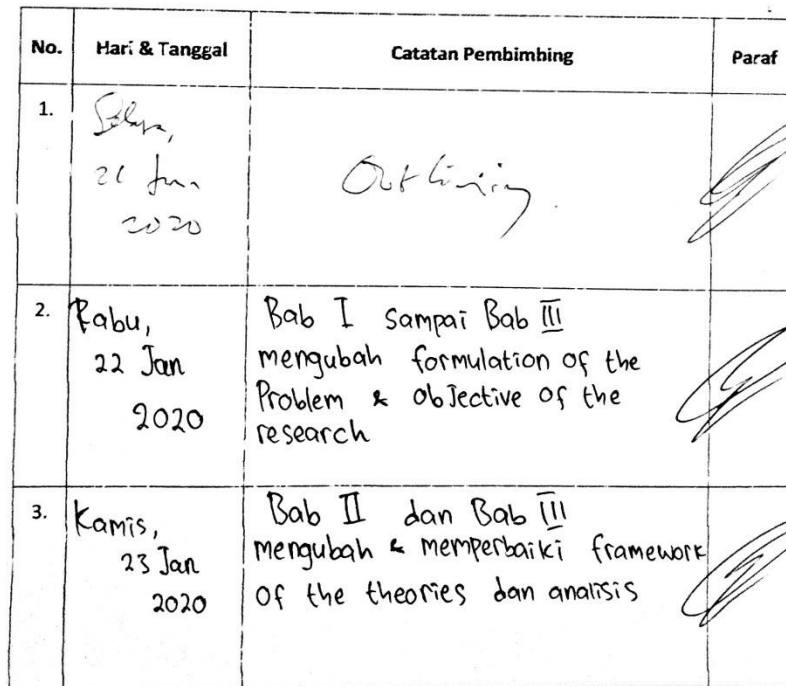 No. Hari & Tanggal Catatan Pembimbing Paraf
1. Selasa,
21 Jan
2020
Outlining.
2. Rabu,
22 Jan
2020
Bab I sampai Bab III
mengubah formulation of the
Problem & obJective of the
research
3. Kamis,
23 Jan
2020
Bab II dan Bab III
mengubah & memperbaiki framework
of the theories dan analisis